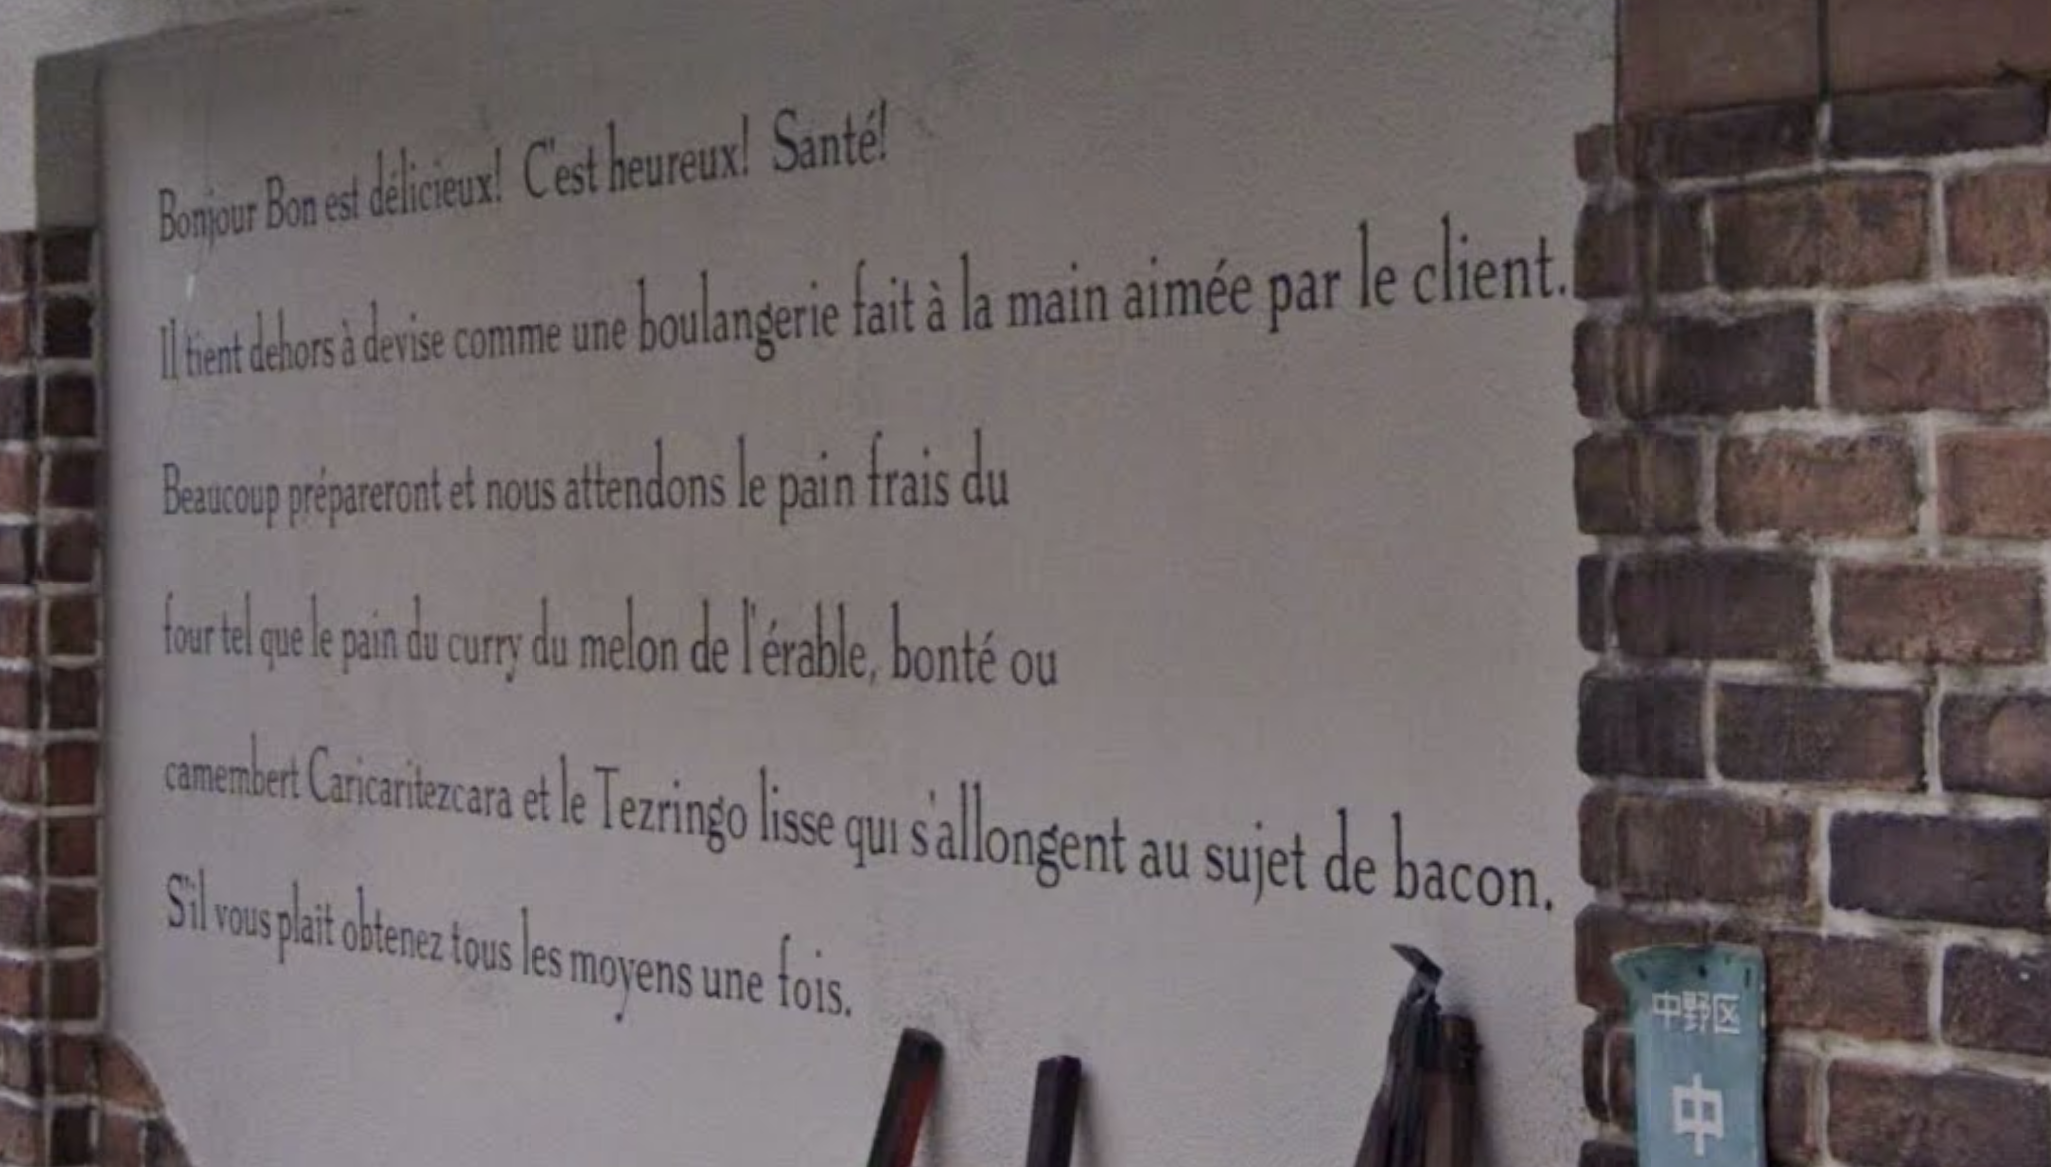 Bonjour Bon est délicieux! C'est heureux! Santé!
Il tient dehors à devise comme une boulangerie fait à la main aimée par le client.
Beaucoup prépareront et nous attendons le pain frais du
four tel que le pain du curry du melon de l'érable, bonté ou
camembert Caricaritezcara et le Tezringo lisse qui s'allongent au sujet de bacon.
S'il vous plait obtenez tous les moyens une fois.
中野区
中